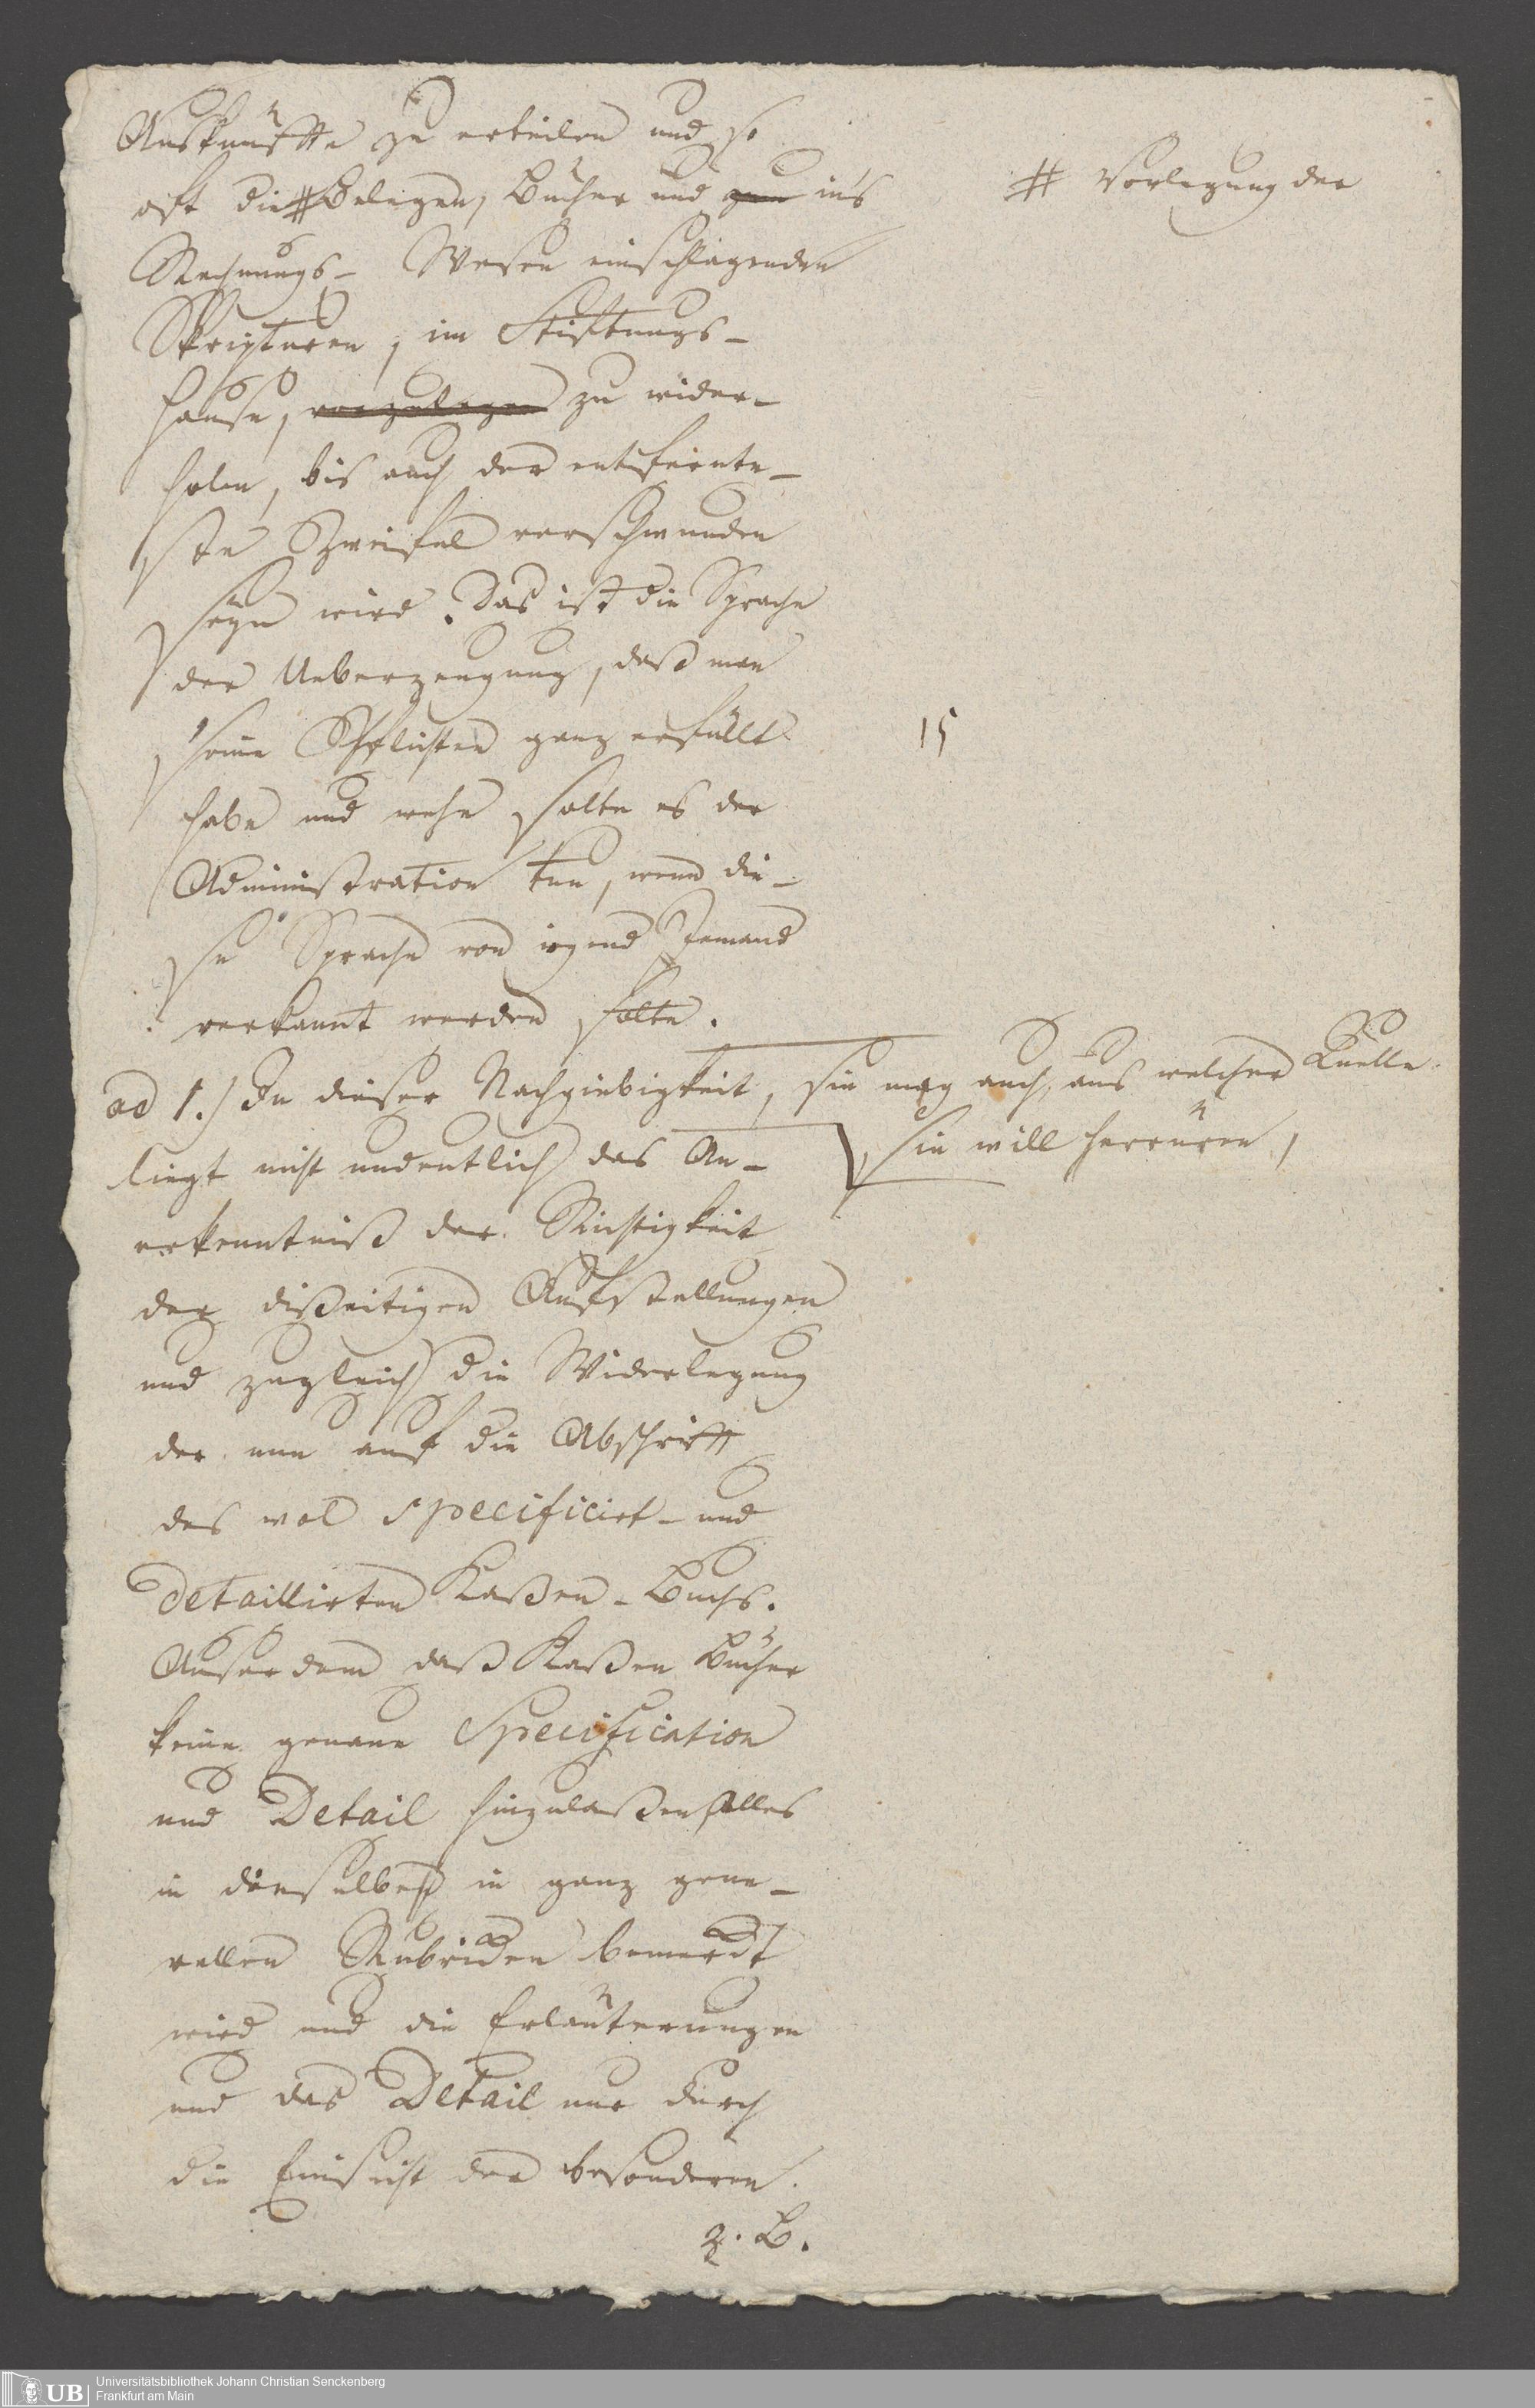 Auskünffte zu erteilen und so
oft die # Belegen, Bücher und in's
# Vorlegung der
Rechnungs- Wesen einschlagenden
Skripturen, im Stiftungs-
hause, vorzulegen zu wider-
holen, bis auch der entfernte-
ste Zweifel verschwunden
seyn wird. Das ist die Sprache
der Ueberzeugung, daß man
seine Pflichten ganz erfüllt
15
habe und wehe solte es der
Administration tun, wenn die-
se Sprache von irgend Jemand
verkannt werden solte.
ad 1.) In dieser Nachgiebigkeit, sie mag auch, aus welcher Quelle
sie will herrüren,
liegt nicht undeutlich das An-
erkenntniß der Richtigkeit
der disseitigen Aufstellungen
und zugleich die Widerlegung
der nun auf die Abschrifft
des wol specificirt- und
detaillirten Kaßen-Buchs.
Auser dem daß Kaßen Bücher
keine genaue Specification
und Detail hinzulaßen, alles
in denselben in ganz gene-
rellen Rubricken bemerckt
wird und die Erläuterungen
und das Detail nur durch
die Einsicht der besonderen
z. B.
Universitätsbibliothek Johann Christian Senckenberg
Frankfurt am Main
UB